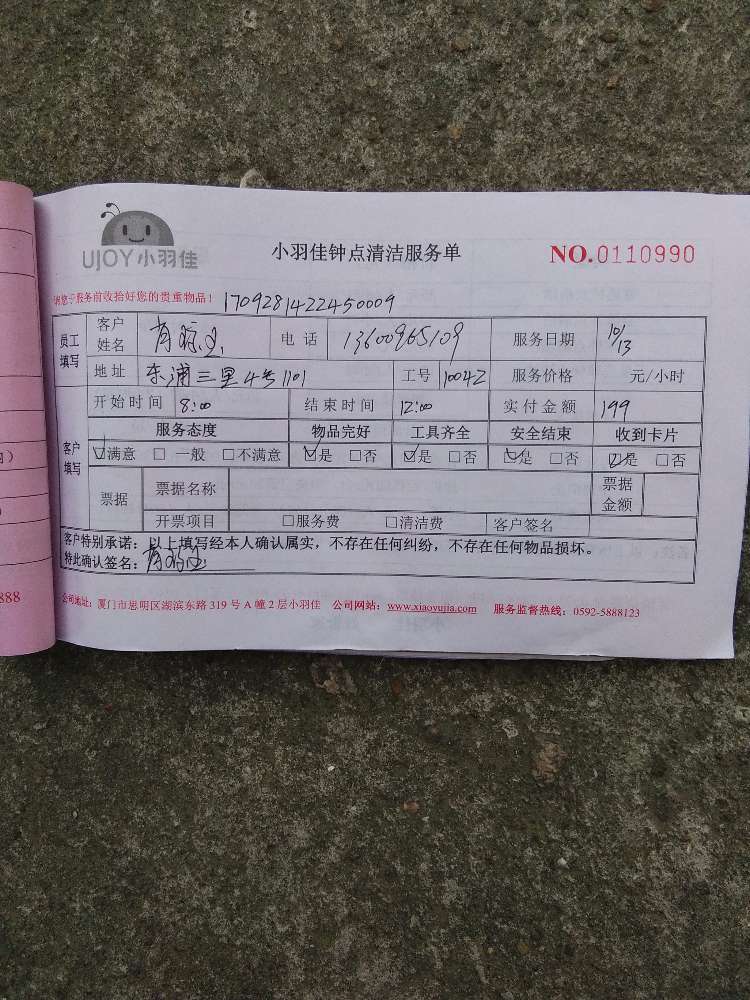 UJOY小羽佳
小羽佳钟点清洁服务单
NO.0110990
请您于服务前收拾好您的贵重物品！ 1709281422450009
员工填写 客户姓名 电话 13600965109 服务日期 10/13
地址 东浦三里4号1101 工号 10042 服务价格 元/小时
开始时间 8:00 结束时间 12:00 实付金额 199
客户填写 服务态度 物品完好 工具齐全 安全结束 收到卡片
☑满意 □一般 □不满意 ☑是 □否 ☑是 □否 ☑是 □否 ☑是 □否
票据 票据名称 票据金额
开票项目 □服务费 □清洁费 客户签名
客户特别承诺：以上填写经本人确认属实，不存在任何纠纷，不存在任何物品损坏。
特此确认签名：
公司地址：厦门市思明区湖滨东路319号A幢2层小羽佳 公司网站：www.xiaoyujia.com 服务监督热线：0592-5888123
888